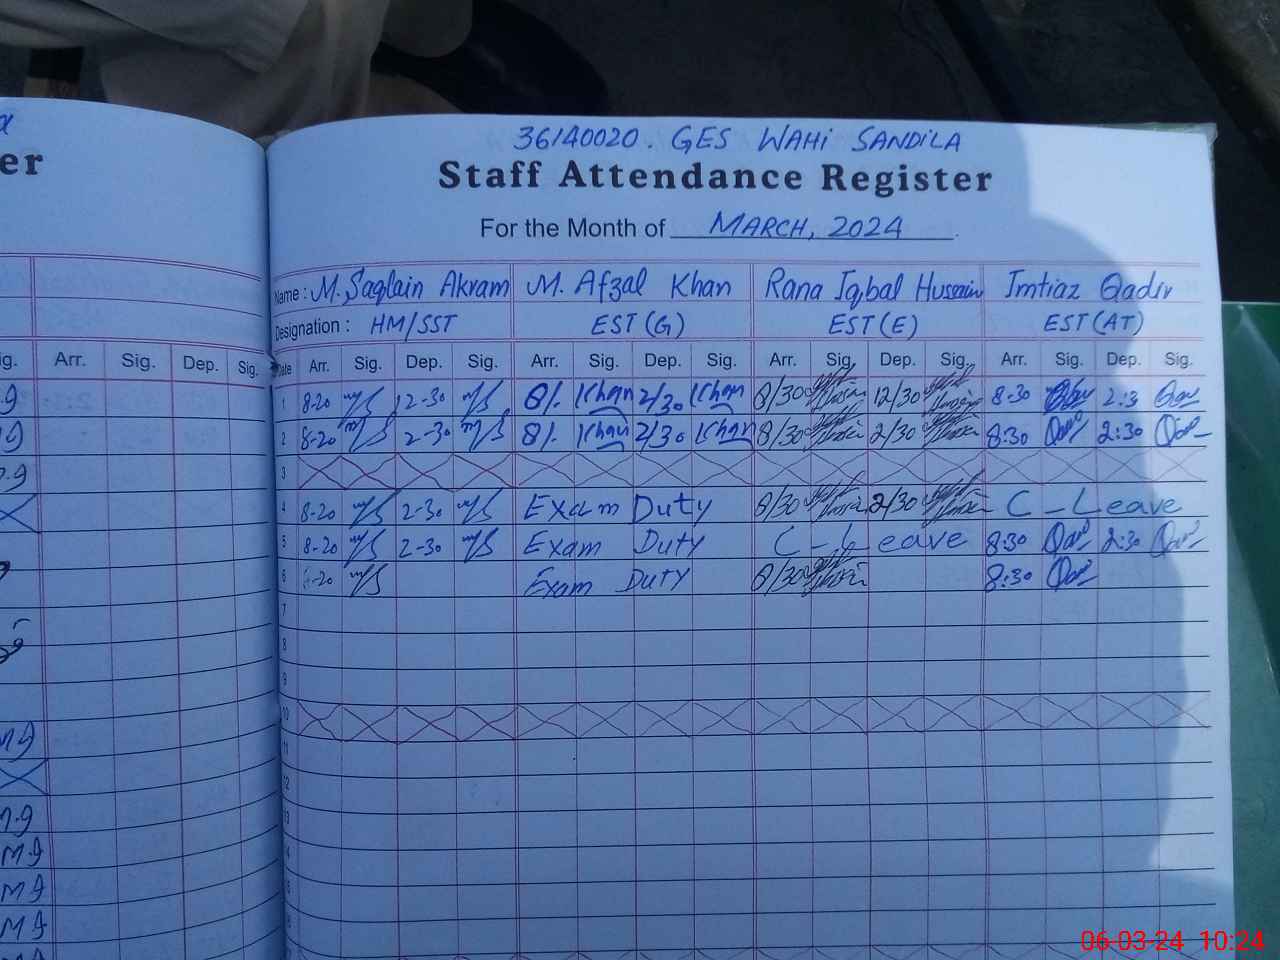 er
36140020. GES WAHI SANDILA
Staff Attendance Register
For the Month of MARCH, 2024
Name : M. Saqlain Akram M. Afzal Khan Rana Iqbal Hussain Imtiaz Qadir
Designation : HM/SST EST(G) EST(E) EST(AT)
ig. Arr. Sig. Dep. Sig. Date Arr. Sig. Dep. Sig. Arr. Sig. Dep. Sig. Arr. Sig. Dep. Sig. Arr. Sig. Dep. Sig.
1 8-20 12-30 8/. Khan 2/30 Khan 8/30 12/30 8-30 2:3
2 8-20 2-30 8/. Khan 2/30 Khan 8/30 2/30 8:30 2:30
3
4 8-20 2-30 Exam Duty 8/30 2/30 C-Leave
5 8-20 2-30 Exam Duty C-Leave 8:30 2:30
6 -20 Exam Duty 8/30 8:30
7
8
9
10
11
12
13
06-03-24 10:24